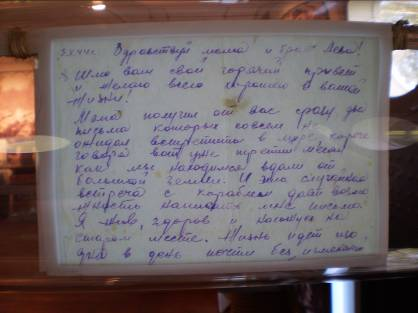 Здравствуй мама и брат Лёва!
Шлю вам свой горячий привет
и желаю всего хорошего в вашей
жизни!
Мама получил от вас сразу два
письма которых совсем не
ожидал встретить в море, короче
говоря вот уже третий месяц
как мы находимся вдали от
большой земли. И эта случайная
встреча с кораблем даёт возмо-
жность написать мне письмо.
Я жив, здоров и нахожусь на
старом месте. Жизнь идет изо
дня в день почти без изменений